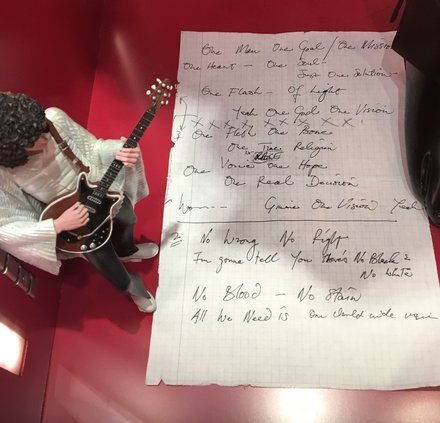 One Man One Goal / One Mission
One Heart – One Soul –
Just One Solution –
One Flash – Of Light
Yeah One God One Vision
x x x x x x x x x x x x
One Flesh One Bone
One True Religion
One Voice One Hope
One Real Decision
Wo–––– Gimme One Vision Yeah
2 No Wrong No Right
I'm gonna tell you there's No Black &
No White
No Blood – No Stain
All We Need is One World wide